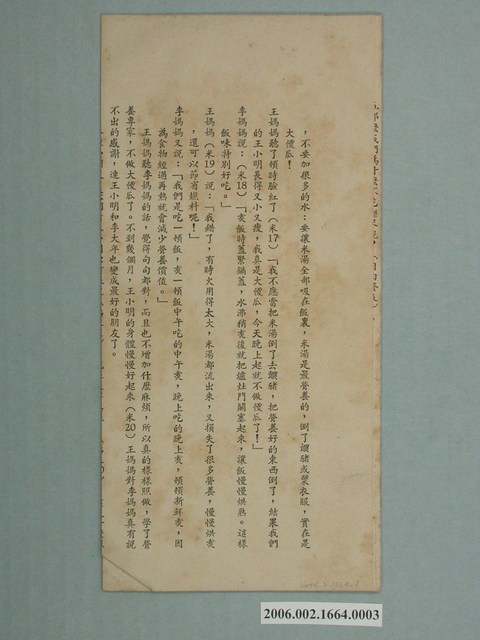 ，不要加很多的水；要讓米湯全部吸在飯裏，米湯是最營養的，倒了餵豬或漿衣服，實在是
大傻瓜！
王媽媽聽了頓時臉紅了（米17）「我不應當把米湯倒了去餵豬，把營養好的東西倒了，結果我們
的王小明長得又小又瘦，我真是大傻瓜，今天晚上起就不做傻瓜了！」
李媽媽說：（米18）「煑飯時蓋緊鍋蓋，水沸稍煑後就把爐灶門關塞起來，讓飯慢慢烘熟。這樣
飯味特別好吃。」
王媽媽（米19）說：「我錯了，有時火用得太大，米湯都流出來，又損失了很多營養，慢慢烘煑
，還可以節省燃料呢！」
李媽媽又說：「我們是吃一頓飯，煑一頓飯中午吃的中午煑，晚上吃的晚上煑，頓頓新鮮煑，因
為食物經過再熱就會減少營養價值。」
王媽媽聽李媽媽的話，覺得句句都對，而且也不增加什麼麻煩，所以真的樣樣照做，學了營
養專家，不做大傻瓜了。不到幾個月，王小明的身體慢慢好起來（米20）王媽媽對李媽媽真有說
不出的感謝，連王小明和李大年也變成最好的朋友了。
2006.002.1664.0003